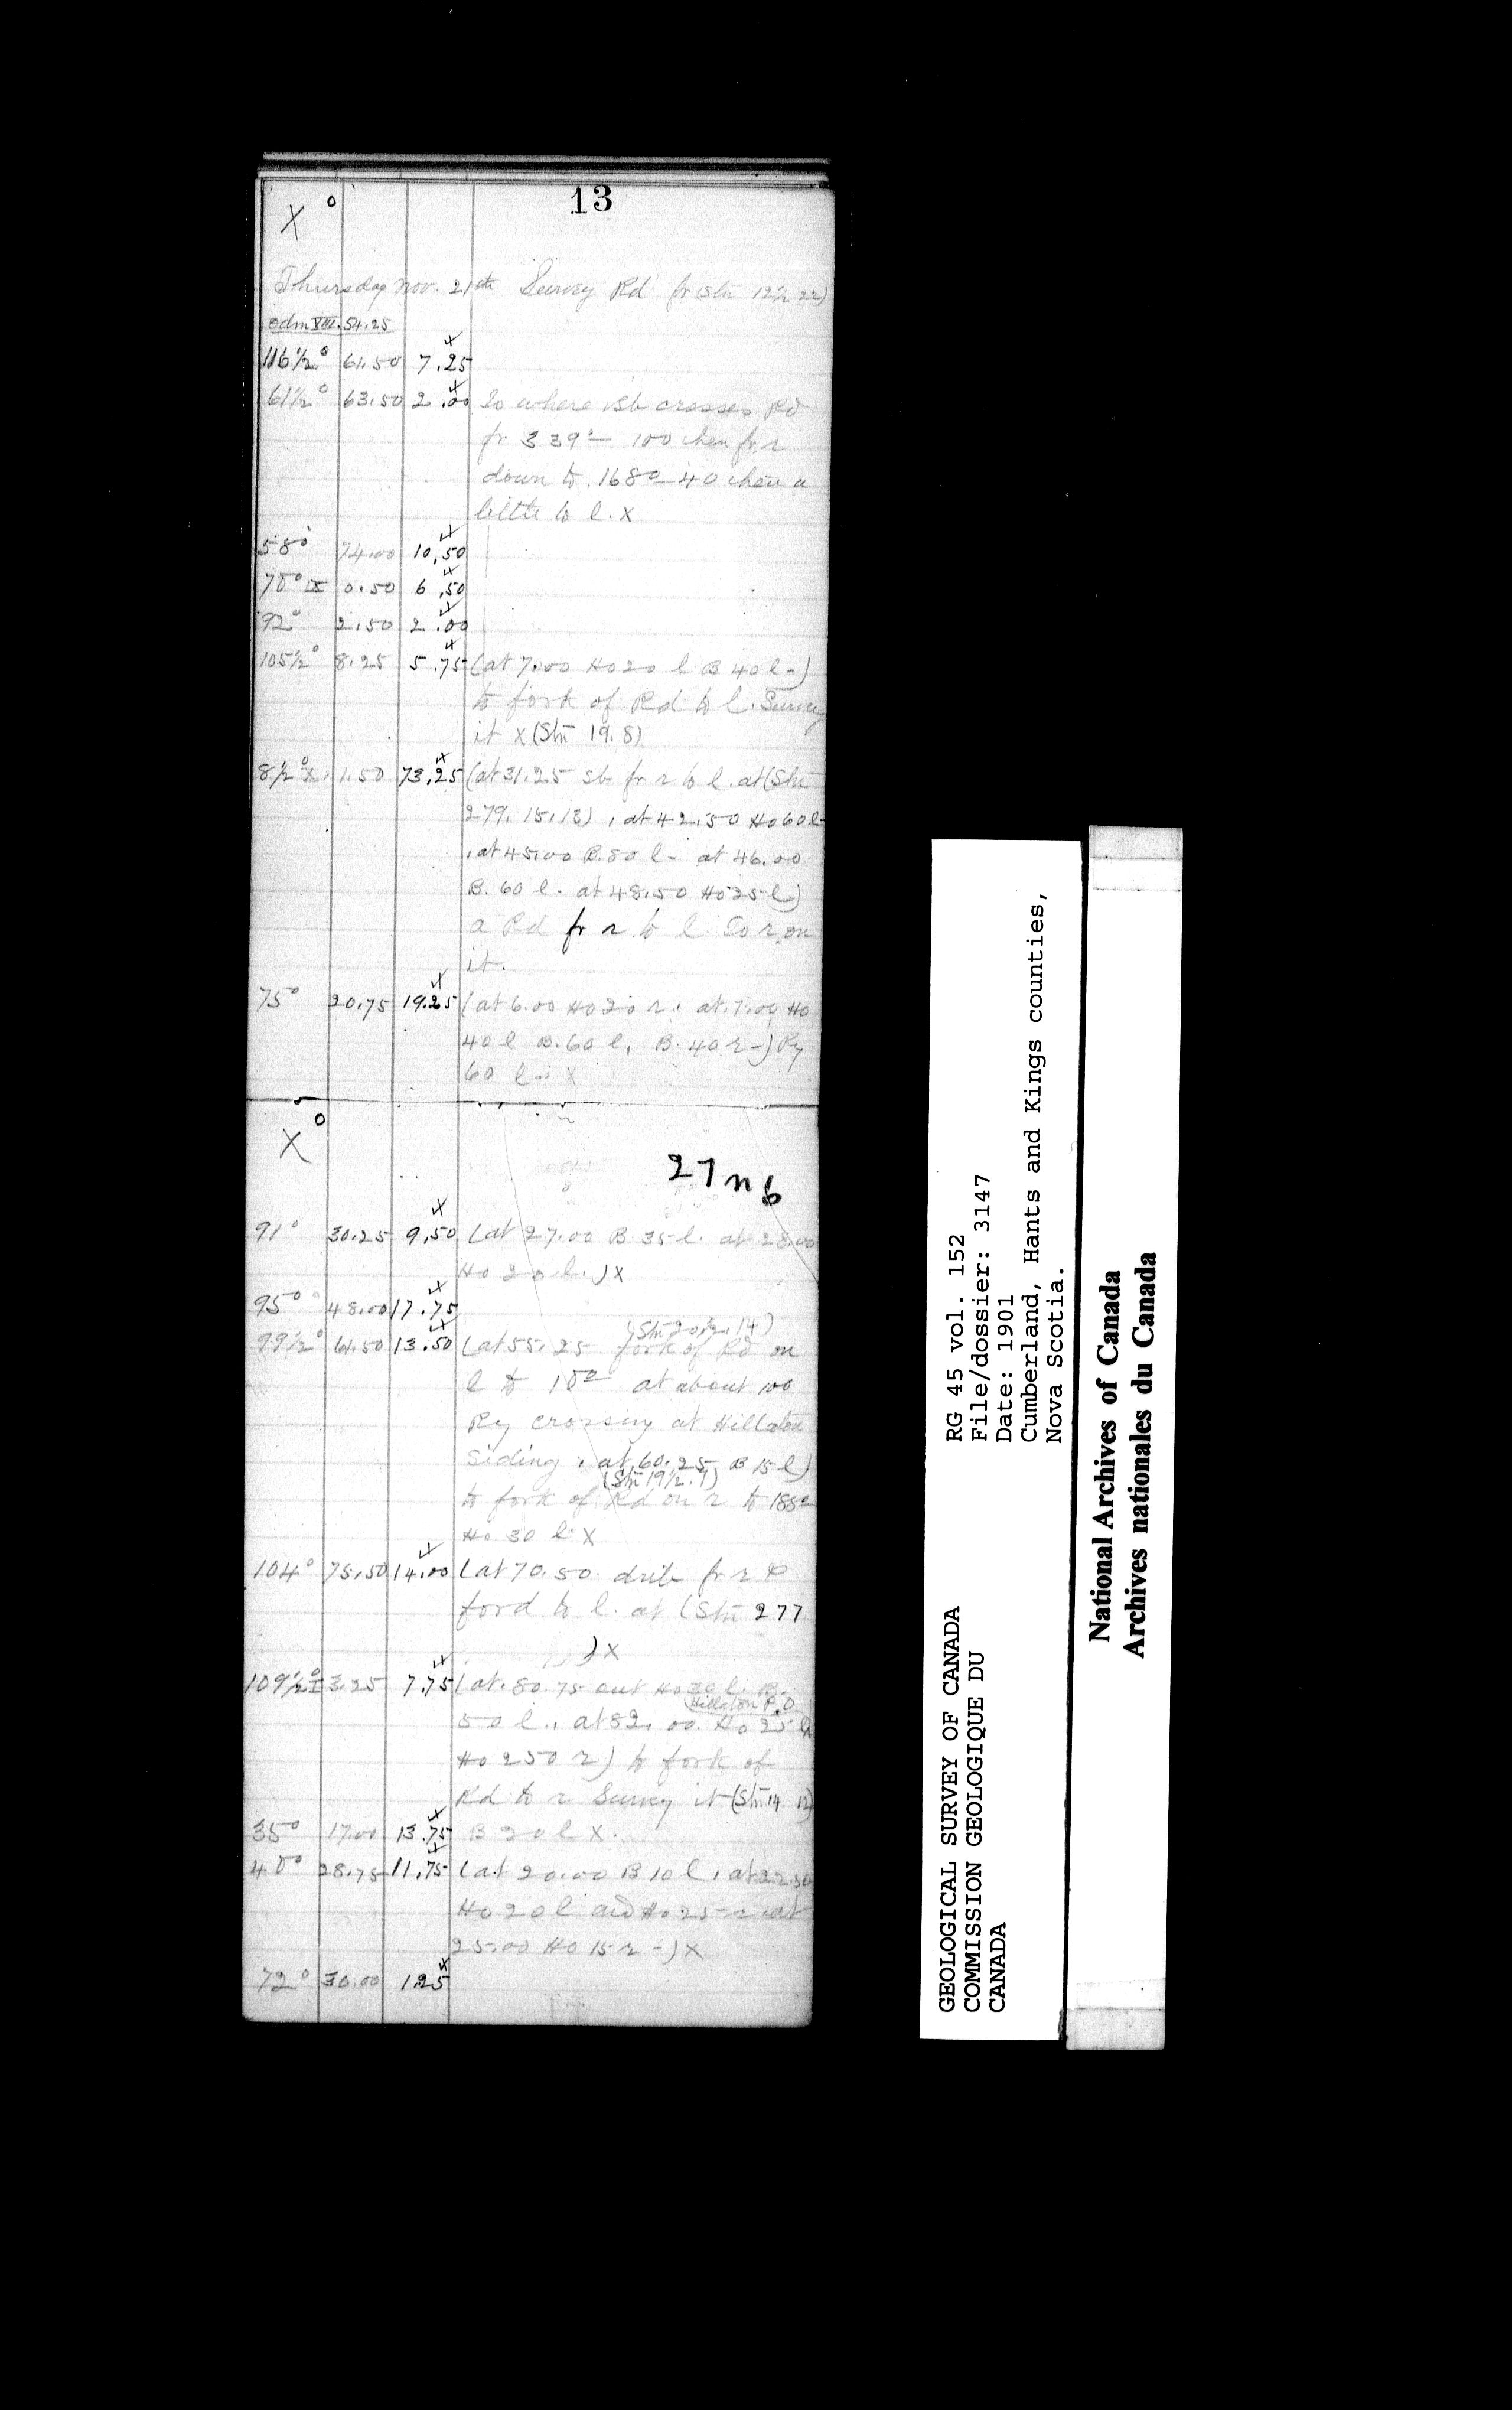 13
X °
Thursday Nov. 21st Survey Rd fr (Stn 12½ 22)
odm VIII. 54.25
116½° 61.50 7.25
61½° 63.50 2.00 To where sb crosses Rd
fr 339° — 100 then fr r
down to 168° — 40 then a
little to l. X
58° 74.00 10.50
78° IX 0.50 6.50
92° 2.50 2.00
105½° 8.25 5.75 (at 7.00 Ho 20 l B 40 l -)
to fork of Rd to l. Survey
it X (Stn 19. 8)
8½° X 1.50 73.25 (at 31.25 sb fr r to l. at (Stn
279. 15. 13), at 42.50 Ho 60 l -
, at 45.00 B. 80 l - at 46.00
B. 60 l. at 48.50 Ho 25 l)
a Rd fr r to l. To r on
it.
75° 20.75 19.25 (at 6.00 Ho 20 r. at 7.00 Ho
40 l B. 60 l, B. 40 r -) Ry
60 l - X
X °
27 n b
91° 30.25 9.50 (at 27.00 B. 35 l. at 28.00
Ho 20 l.) X
95° 48.00 17.75
(Stn 20½. 14)
99½° 61.50 13.50 (at 55.25 fork of Rd on
l to 18° at about 100
Ry crossing at Hillaton
Siding, at 60.25 B 15 l)
(Stn 19½. 1)
to fork of Rd on r to 188°
Ho 30 l X
104° 75.50 14.00 (at 70.50 fr r
ford to l. at (Stn 277
) X
109½° I 3.25 7.75 (at 80.75 Ho 30 l. B.
Hillaton P.O
50 l., at 82.00 Ho 25 l
Ho 250 r) to fork of
Rd to r Survey it (Stn 14 12)
35° 17.00 13.75 B 20 l X.
48° 28.75 11.75 (at 20.00 B 10 l, at 22.50
Ho 20 l and Ho 25 r at
25.00 Ho 15 r -) X
72° 30.00 1.25
GEOLOGICAL SURVEY OF CANADA
COMMISSION GEOLOGIQUE DU
CANADA
RG 45 vol. 152
File/dossier: 3147
Date: 1901
Cumberland, Hants and Kings counties,
Nova Scotia.
National Archives of Canada
Archives nationales du Canada